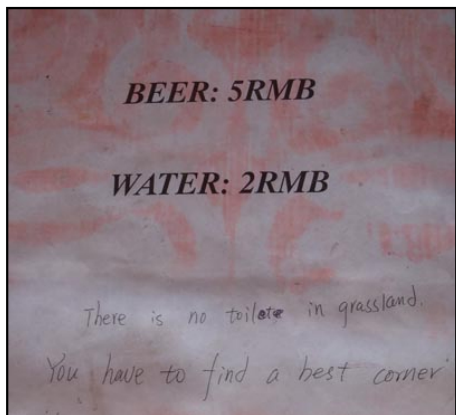 BEER: 5RMB
WATER: 2RMB
There is no toilete in grassland.
You have to find a best corner